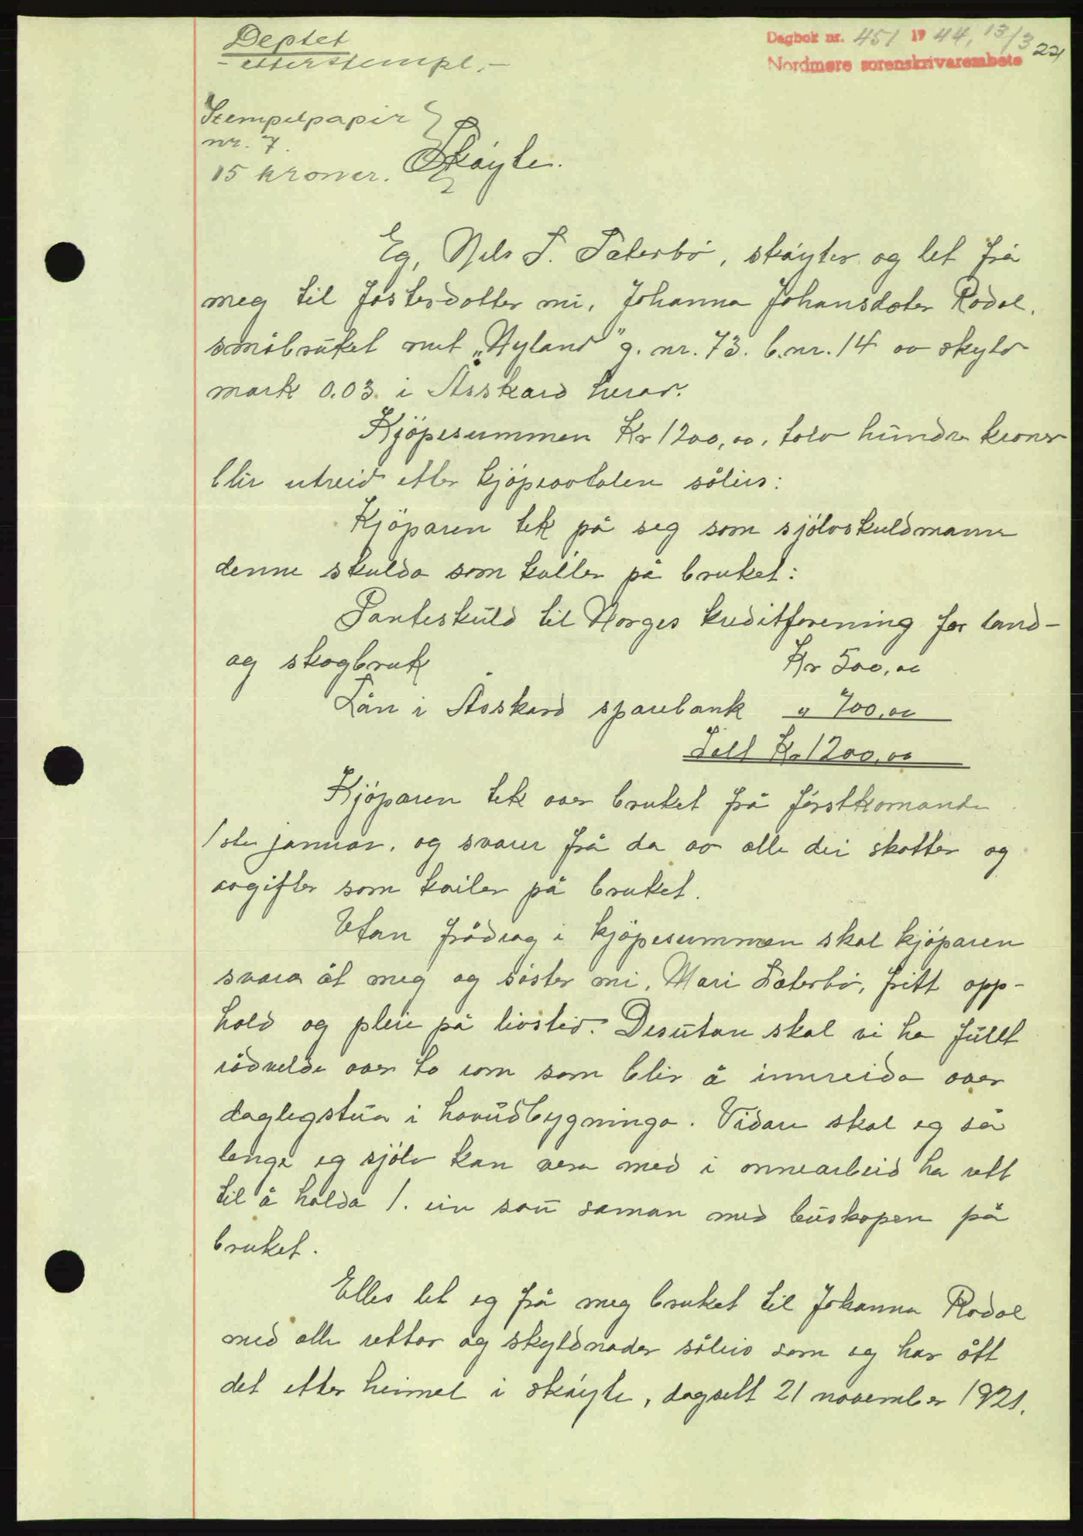 Deptet
- etterstempl. -
Dagbok nr. 451 1944, 13/3 221
Nordmøre sorenskrivarembete
Stempelpapir
nr. 7.
15 kroner.
Skøyte.
Eg, Nils T. Sæterbø, skøyter og let frå
meg til fosterdotter mi, Johanna Johansdoter Rodal,
småbruket mit „Nyland" g. nr. 73. b. nr. 14 av skyld
mark 0.03. i Åsskard herad.
Kjøpesummen Kr 1200,00, tolv hundre kroner
blir utreid etter kjøpeavtalen såleis:
Kjøparen tek på seg som sjølvskuldmann
denne skulda som kviler på bruket:
Panteskuld til Norges kreditforening for land-
og skogbruk Kr 500,00
Lån i Åsskard sparebank " 700,00
Ialt Kr 1200,00
Kjøparen tek over bruket frå førstkomande
1ste januar, og svarer frå da av alle dei skatter og
avgifter som kviler på bruket.
Utan frådrag i kjøpesummen skal kjøparen
svara åt meg og søster mi, Mari Sæterbø, fritt opp-
hold og pleie på livstid. Desutan skal vi ha fullt
rådvelde over to rom som blir å innreida over
daglegstua i hovudbygninga. Vidare skal eg så
lenge eg sjølv kan vera med i onnearbeid ha rett
til å halda 1. ein sau saman med buskapen på
bruket.
Elles let eg frå meg bruket til Johanna Rodal
med alle rettar og skyldnader såleis som eg har ått
det etter heimel i skøyte, dagsett 21 november 1921.